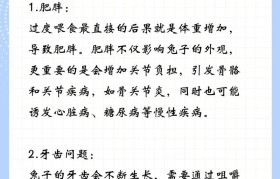 1.肥胖：
过度喂食最直接的后果就是体重增加，
导致肥胖。肥胖不仅影响兔子的外观，
更重要的是会增加关节负担，引发骨骼
和关节疾病，如骨关节炎，同时也可能
诱发心脏病、糖尿病等慢性疾病。
2.牙齿问题：
兔子的牙齿会不断生长，需要通过咀嚼